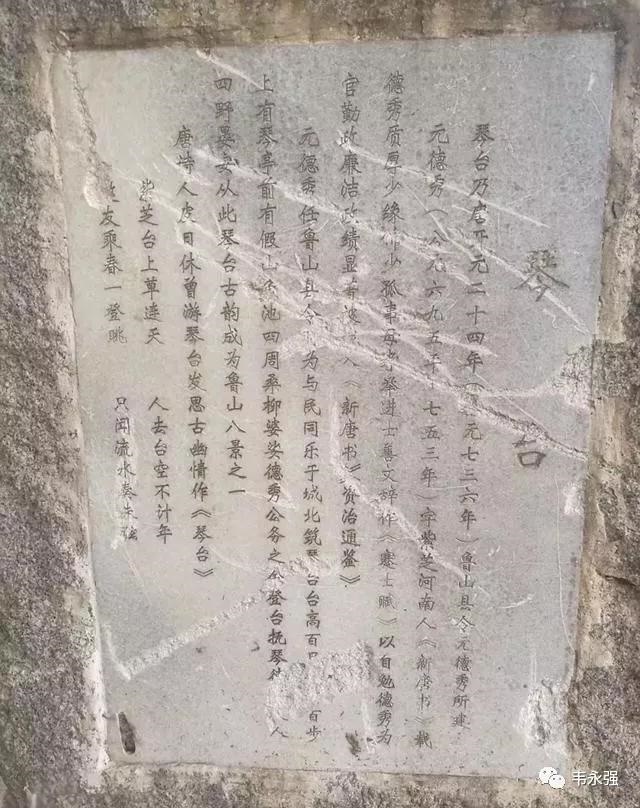 琴台
琴台乃唐开元二十四年(公元七三六年)鲁山县令元德秀所建
元德秀(公元六九五年 七五三年)字紫芝河南人《新唐书》载
德秀质厚少缘饰少孤事母孝举进士善文辞作《蹇士赋》以自勉德秀为
官勤政廉洁政绩显著 人《新唐书》《资治通鉴》
元德秀任鲁山县令 为与民同乐于城北筑琴台台高百 百步
上有琴亭前有假山鱼池四周翠柳婆娑德秀公务之余登台抚琴 人
四野晏安从此琴台古韵成为鲁山八景之一
唐诗人皮日休曾游琴台发思古幽情作《琴台》
紫芝台上草连天 人去台空不计年
友乘春一登眺 只闻流水
韦永强